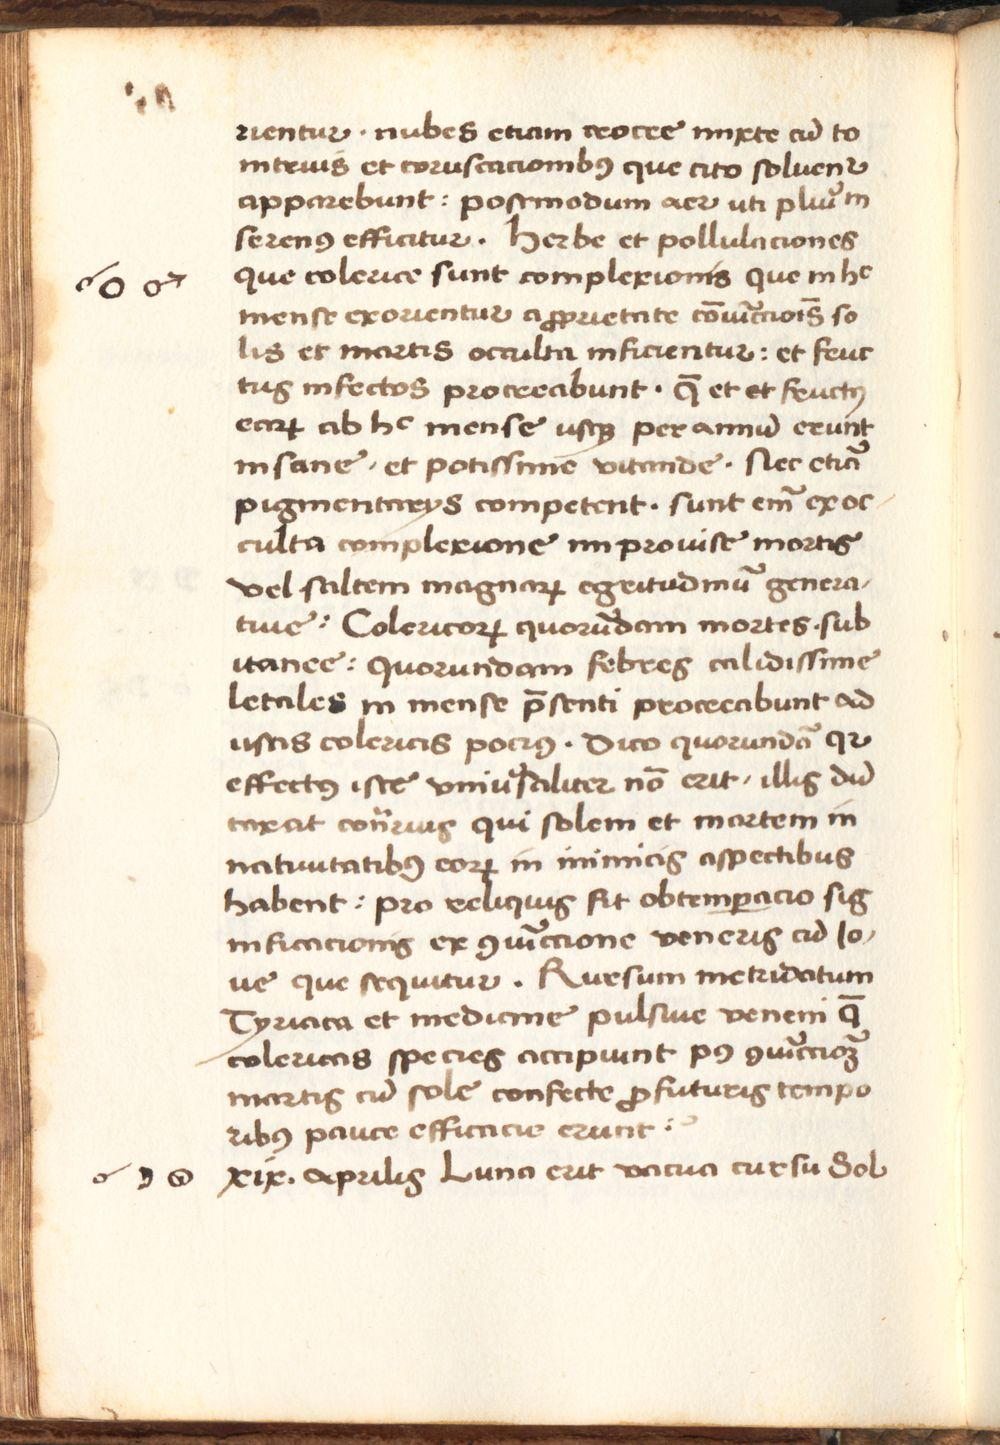 rientur · nubes etiam crocee mixte cū to
nitruis et coruscacionibꝰ que cito soluenť
apparebunt : postmodum aer uti pluīm
serenꝰ efficitur . Herbe et pollulaciones
☌☉ ♂ que colerice sunt complexionis Que in hᶜ
mense exorientur a ꝓprietate cōiūccioīs so
lis et martis occulta inficientur : et fruc
tus infectos procreabunt · q̄ et et fructꝰ
earꝝ ab hᶜ mense usqꝫ per annū erunt
insane , et potissime vitande . Nec etiā
pigmentarys competent . sunt em̄ ex oc
culta complexione improuise mortis
vel saltem magnarꝝ egritudinū genera,
tiue : Colericorꝝ quorūdam mortes · sub
itanee : Quorundam febres calidissime
letales in mense p̄senti procreabunt ad
ustis colericis pociꝰ . Dico quorundā qꝛ
effectꝰ iste vniūsaliter nō erit , illis dū
taxat cont̄rius qui solem et martem in
natiuitatibꝰ eorꝝ in inimicis aspectibus
habent : pro reliquis fit obtemꝑacio sig
nificacionis ex ꝯiūccione veneris cū Io,
ue que sequitur . Rursum metridatum
Tyriaca et medicine pulsiue veneni q̄
colericas species accipiunt pꝰ ꝯiūccioꝫ
martis cū sole confecte ꝓ futuris tempo
ribꝰ pauce efficacie erunt :
☌ ☽ ☉ xix. aprilis Luna erit vacua cursu Sol